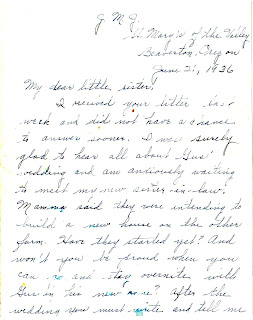 J. M. J.
St. Mary's of the Valley
Beaverton, Oregon
June 21, 1936
My dear little sister,
I recived your letter last
week and did not have a chance
to answer sooner. I was surely
glad to hear all about Gus'
wedding and am anxiously waiting
to meet my new sister-in-law.
Mamma said they were intending to
build a new house on the other
farm. Have they started yet? And
won't you be proud when you
can go and stay overnite with
Gus in his new home? After the
wedding you must write and tell me